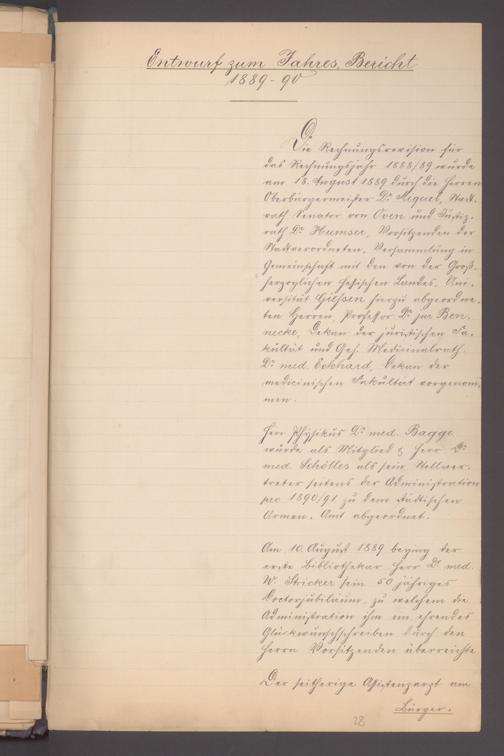 Entwurf zum Jahres-Bericht
1889-90
Die Rechnungsrevision für
das Rechnungsjahr 1888/89 wurde
am 18. August 1889 durch die Herren
Oberbürgermeister Dr Miquel, Stadt-
rath Senator von Oven und Justiz-
rath Dr Humser, Vorsitzenden der
Stadtverordneten-Versammlung in
Gemeinschaft mit den von der Groß-
herzoglichen hessischen Landes-Uni-
versität Giessen hierzu abgeordne-
ten Herren, Professor Dr jur Ben-
necke, Dekan der juristischen Fa-
kultät und Geh. Medicinalrath
Dr med. Eckhard, Dekan der
medicinischen Fakultät vorgenom-
men.
Herr Physikus Dr med. Bagge
wurde als Mitglied & Herr Dr
med. Schölles als sein Stellver-
treter seitens der Administration
pro 1890/91 zu dem städtischen
Armen-Amt abgeordnet.
Am 10. August 1889 beging der
erste Bibliothekar Herr Dr med.
W. Stricker sein 50 jähriges
Doctorjubiläum, zu welchem die
Administration ihm ein ehrendes
Glückwunschschreiben durch den
Herrn Vorsitzenden überreichte.
Der seitherige Assistenzarzt am
Bürger-
28